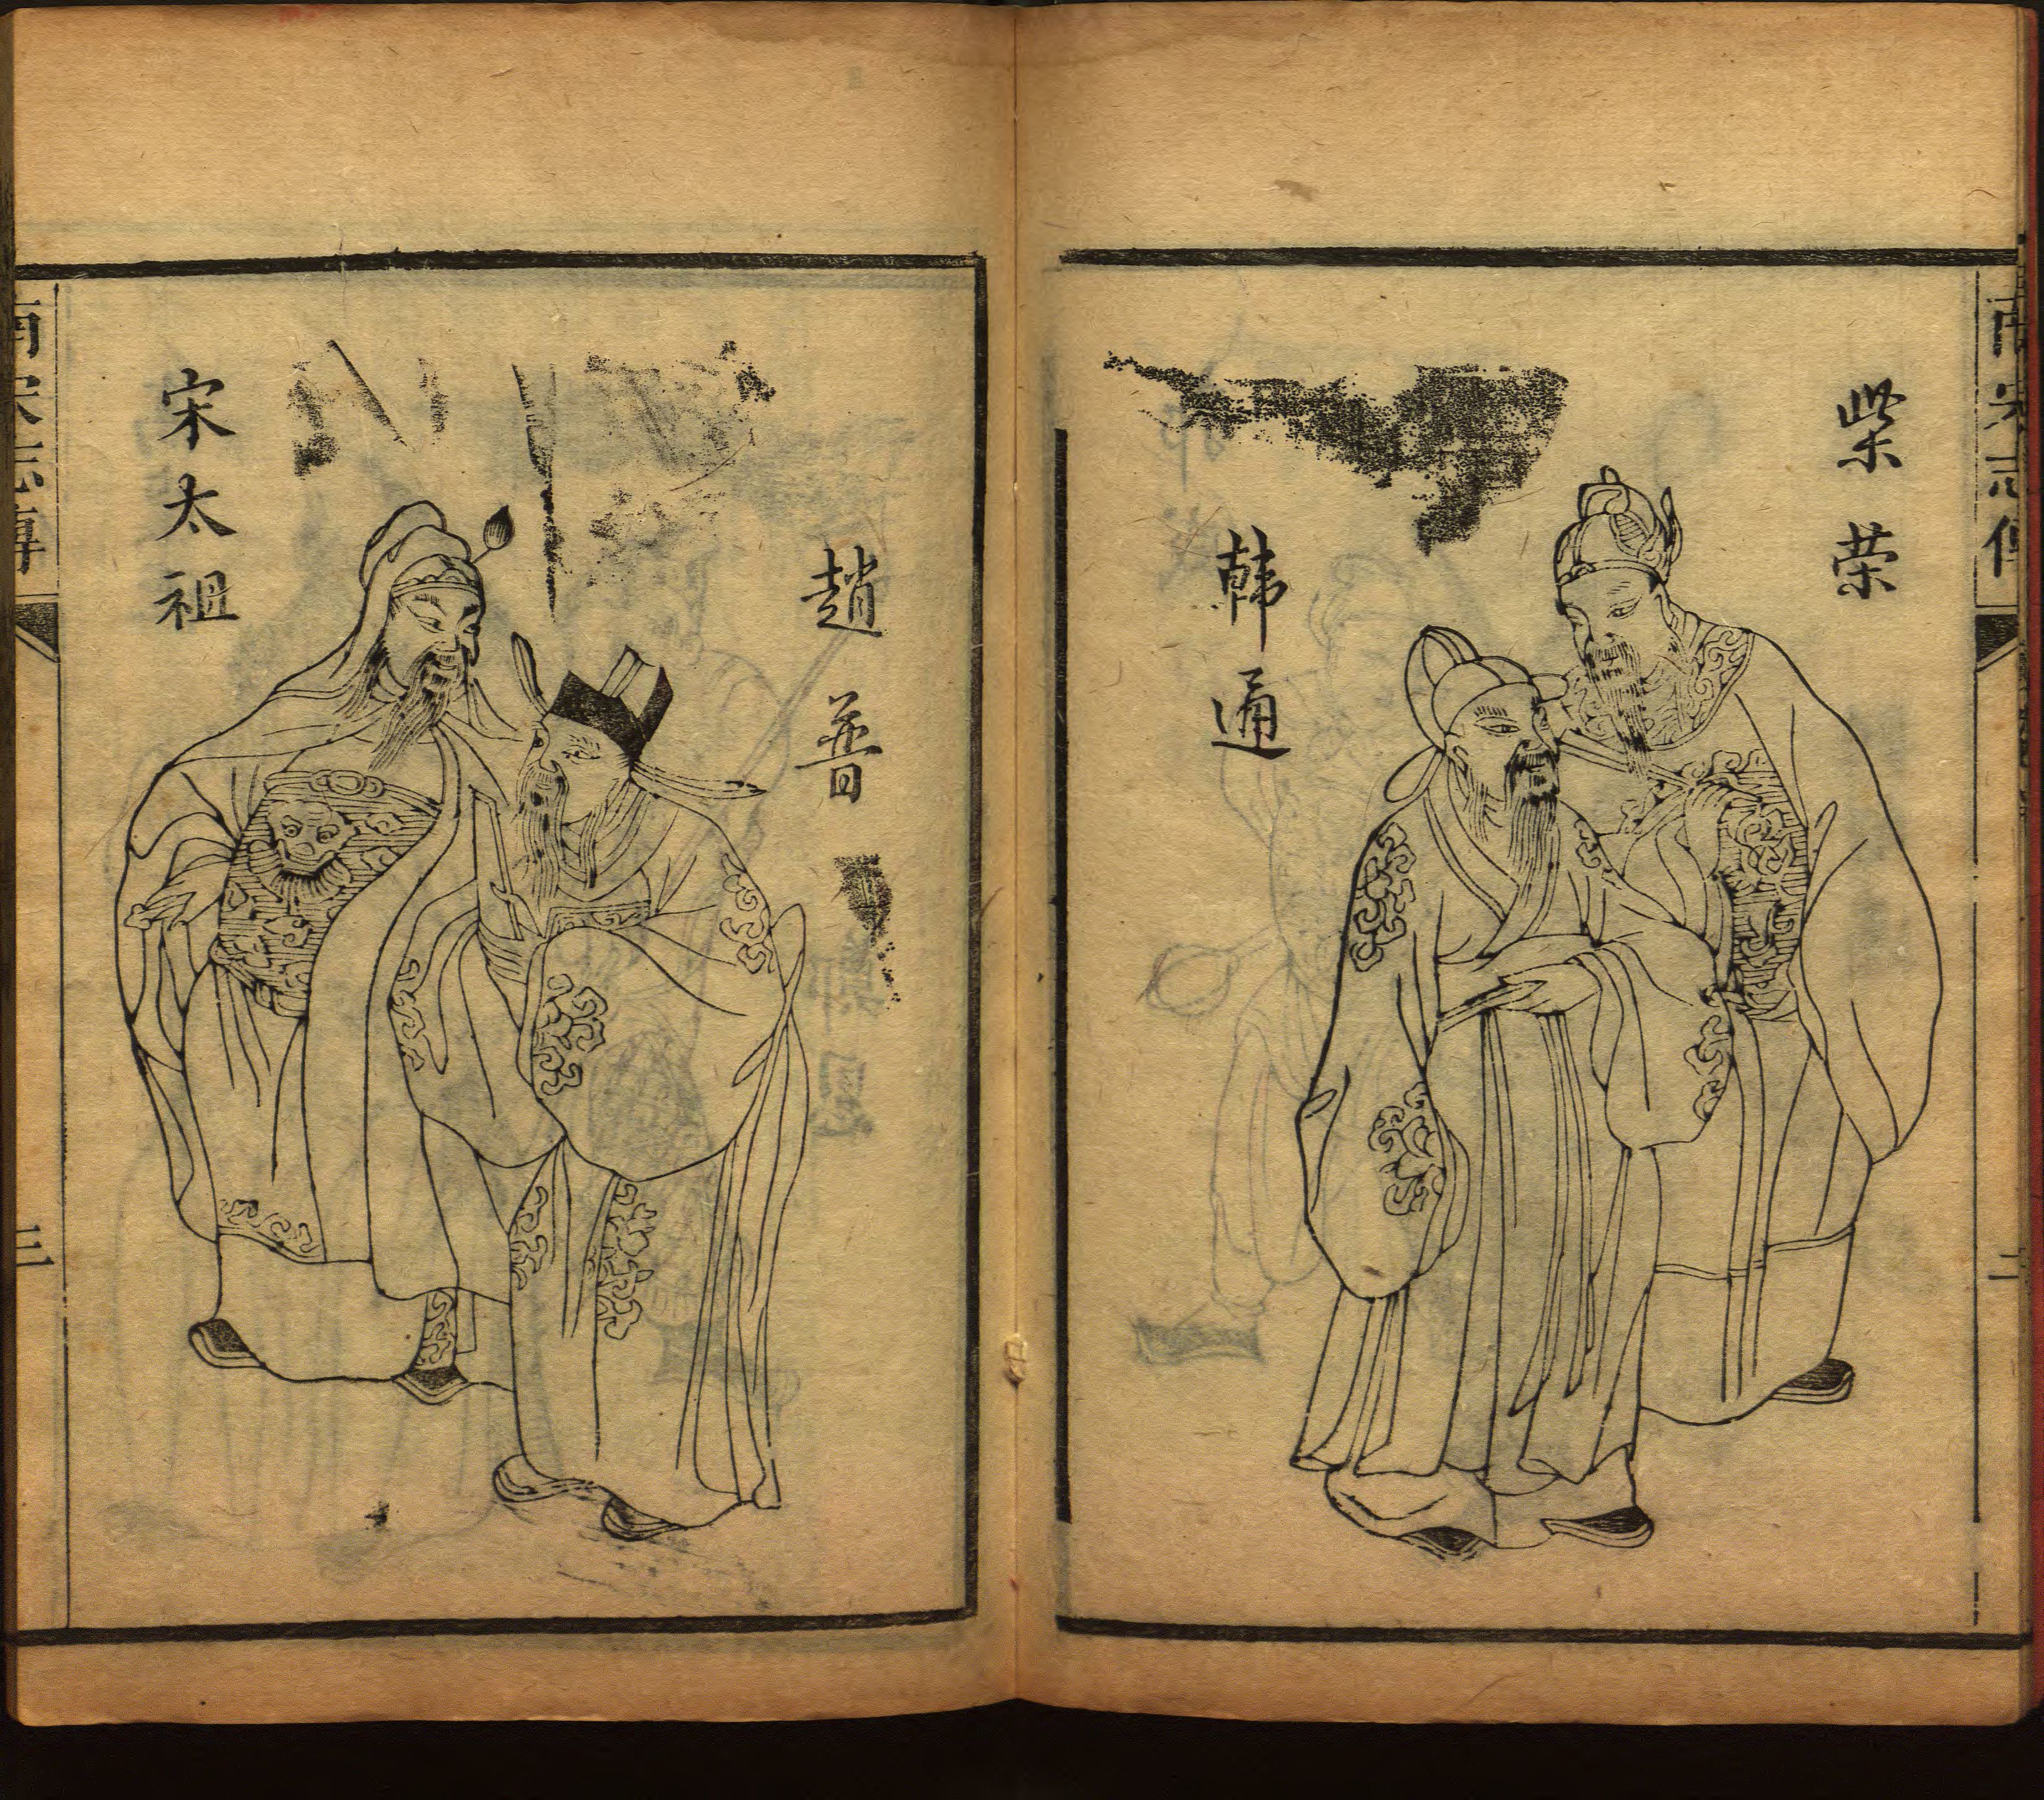 南宋志傳
柴荣
韩通
二
趙普
宋太祖
南宋志傳
三